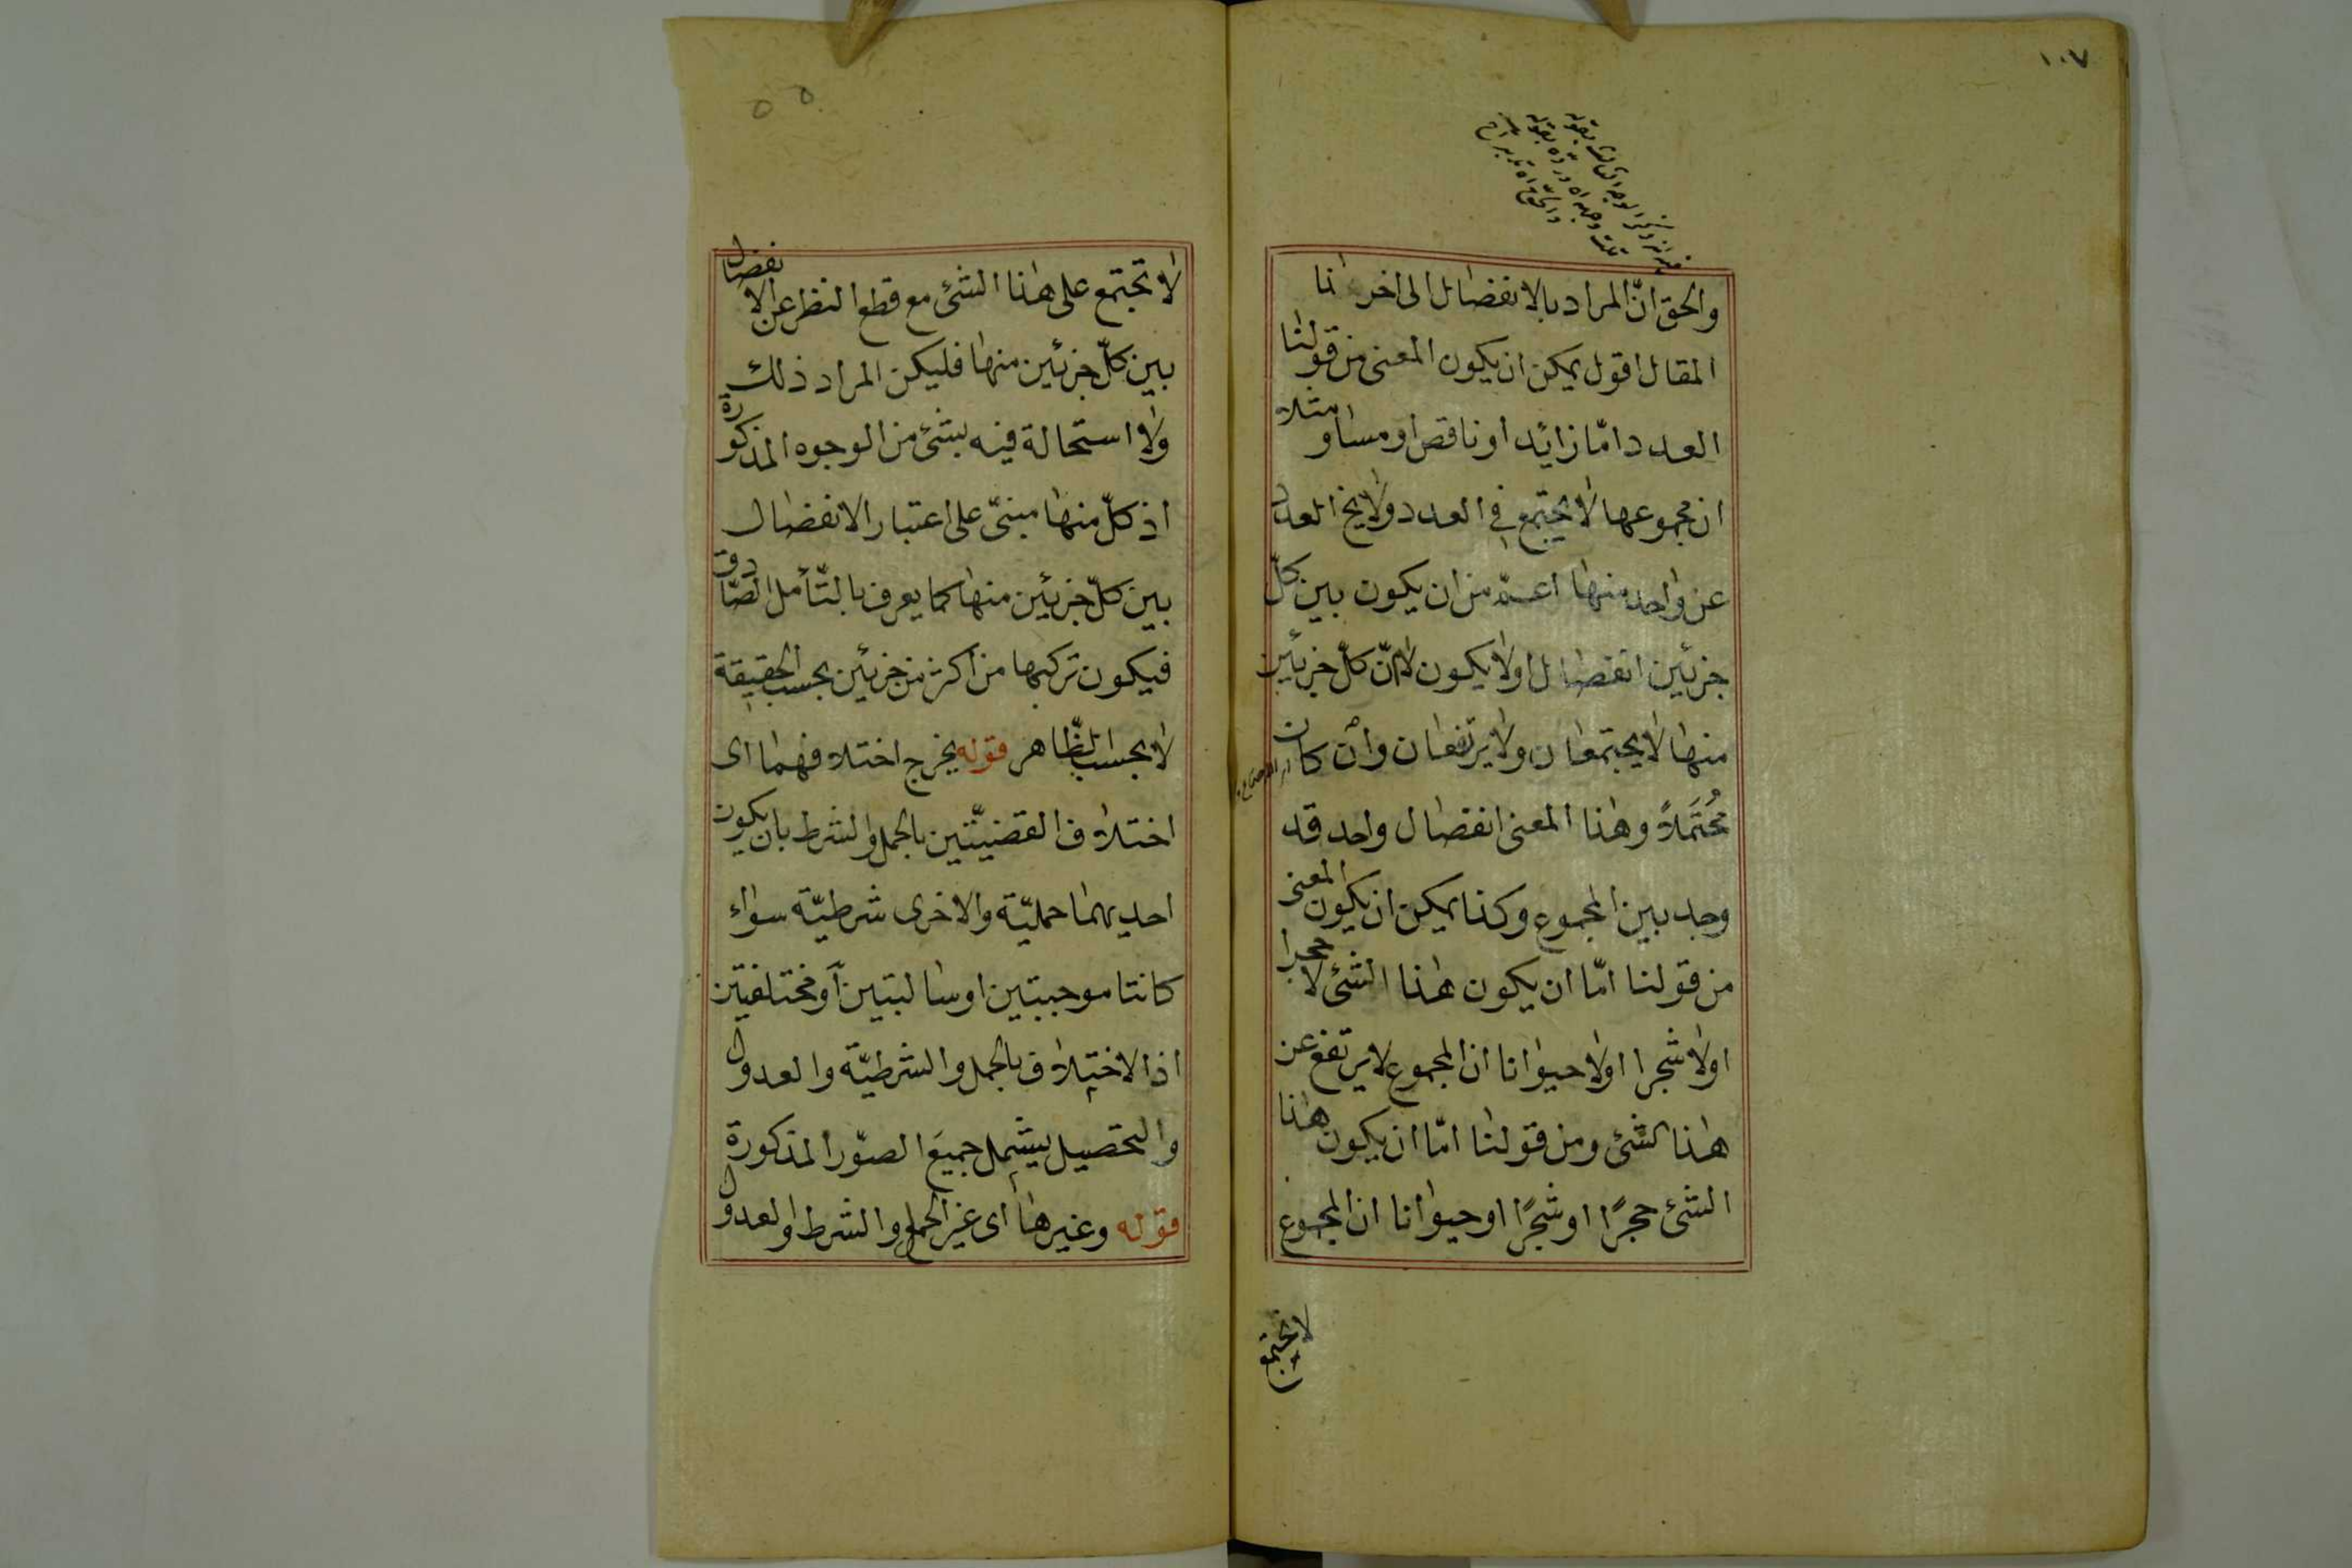 ١٠٧
والحق انّ المراد بالانفصال الى اخر
المقال اقول يمكن ان يكون المعنى من قولنا
العدد امّا زائد او ناقص او مساو مثلا
ان مجموعها لا يجتمع في العدد ولا يخ العدد
عن واحد منها اعمّ من ان يكون بين كلّ
جزئين انفصال اولا يكون لانّ كلّ جزئين
منها لا يجتمعان ولا يرتفعان وان كان
مُحْتَمَلاً وهذا المعنى انفصال واحد قد
وجد بين المجموع وكذا يمكن ان يكون المعنى
من قولنا امّا ان يكون هذا الشئ لا حجرا
اولا شجرا اولا حيوانا ان المجموع لا يرتفع عن
هذا الشئ ومن قولنا امّا ان يكون هذا
الشئ حجرًا او شجرًا او حيوانا ان المجموع
لا تجتمع
لا تجتمع على هذا الشئ مع قطع النظر عن الانفصال
بين كلّ جزئين منها فليكن المراد ذلك
ولا استحالة فيه بشئ من الوجوه المذكورة
اذ كلّ منها مبنىّ على اعتبار الانفصال
بين كلّ جزئين منها كما يعرف بالتّأمل الصّادق
فيكون تركبها من اكثر من جزئين بحسب الحقيقة
لا بحسب الظّاهر قوله يخرج اختلافهما اى
اختلاف القضيّتين بالحمل والشرط بان يكون
احديهما حمليّة والاخرى شرطيّة سواء
كانتا موجبتين او سالبتين او مختلفتين
اذ الاختلاف بالحمل والشرطيّة والعدول
والتحصيل يشمل جميع الصّور المذكورة
قوله وغيرها اى غير الحمل والشرط والعدول